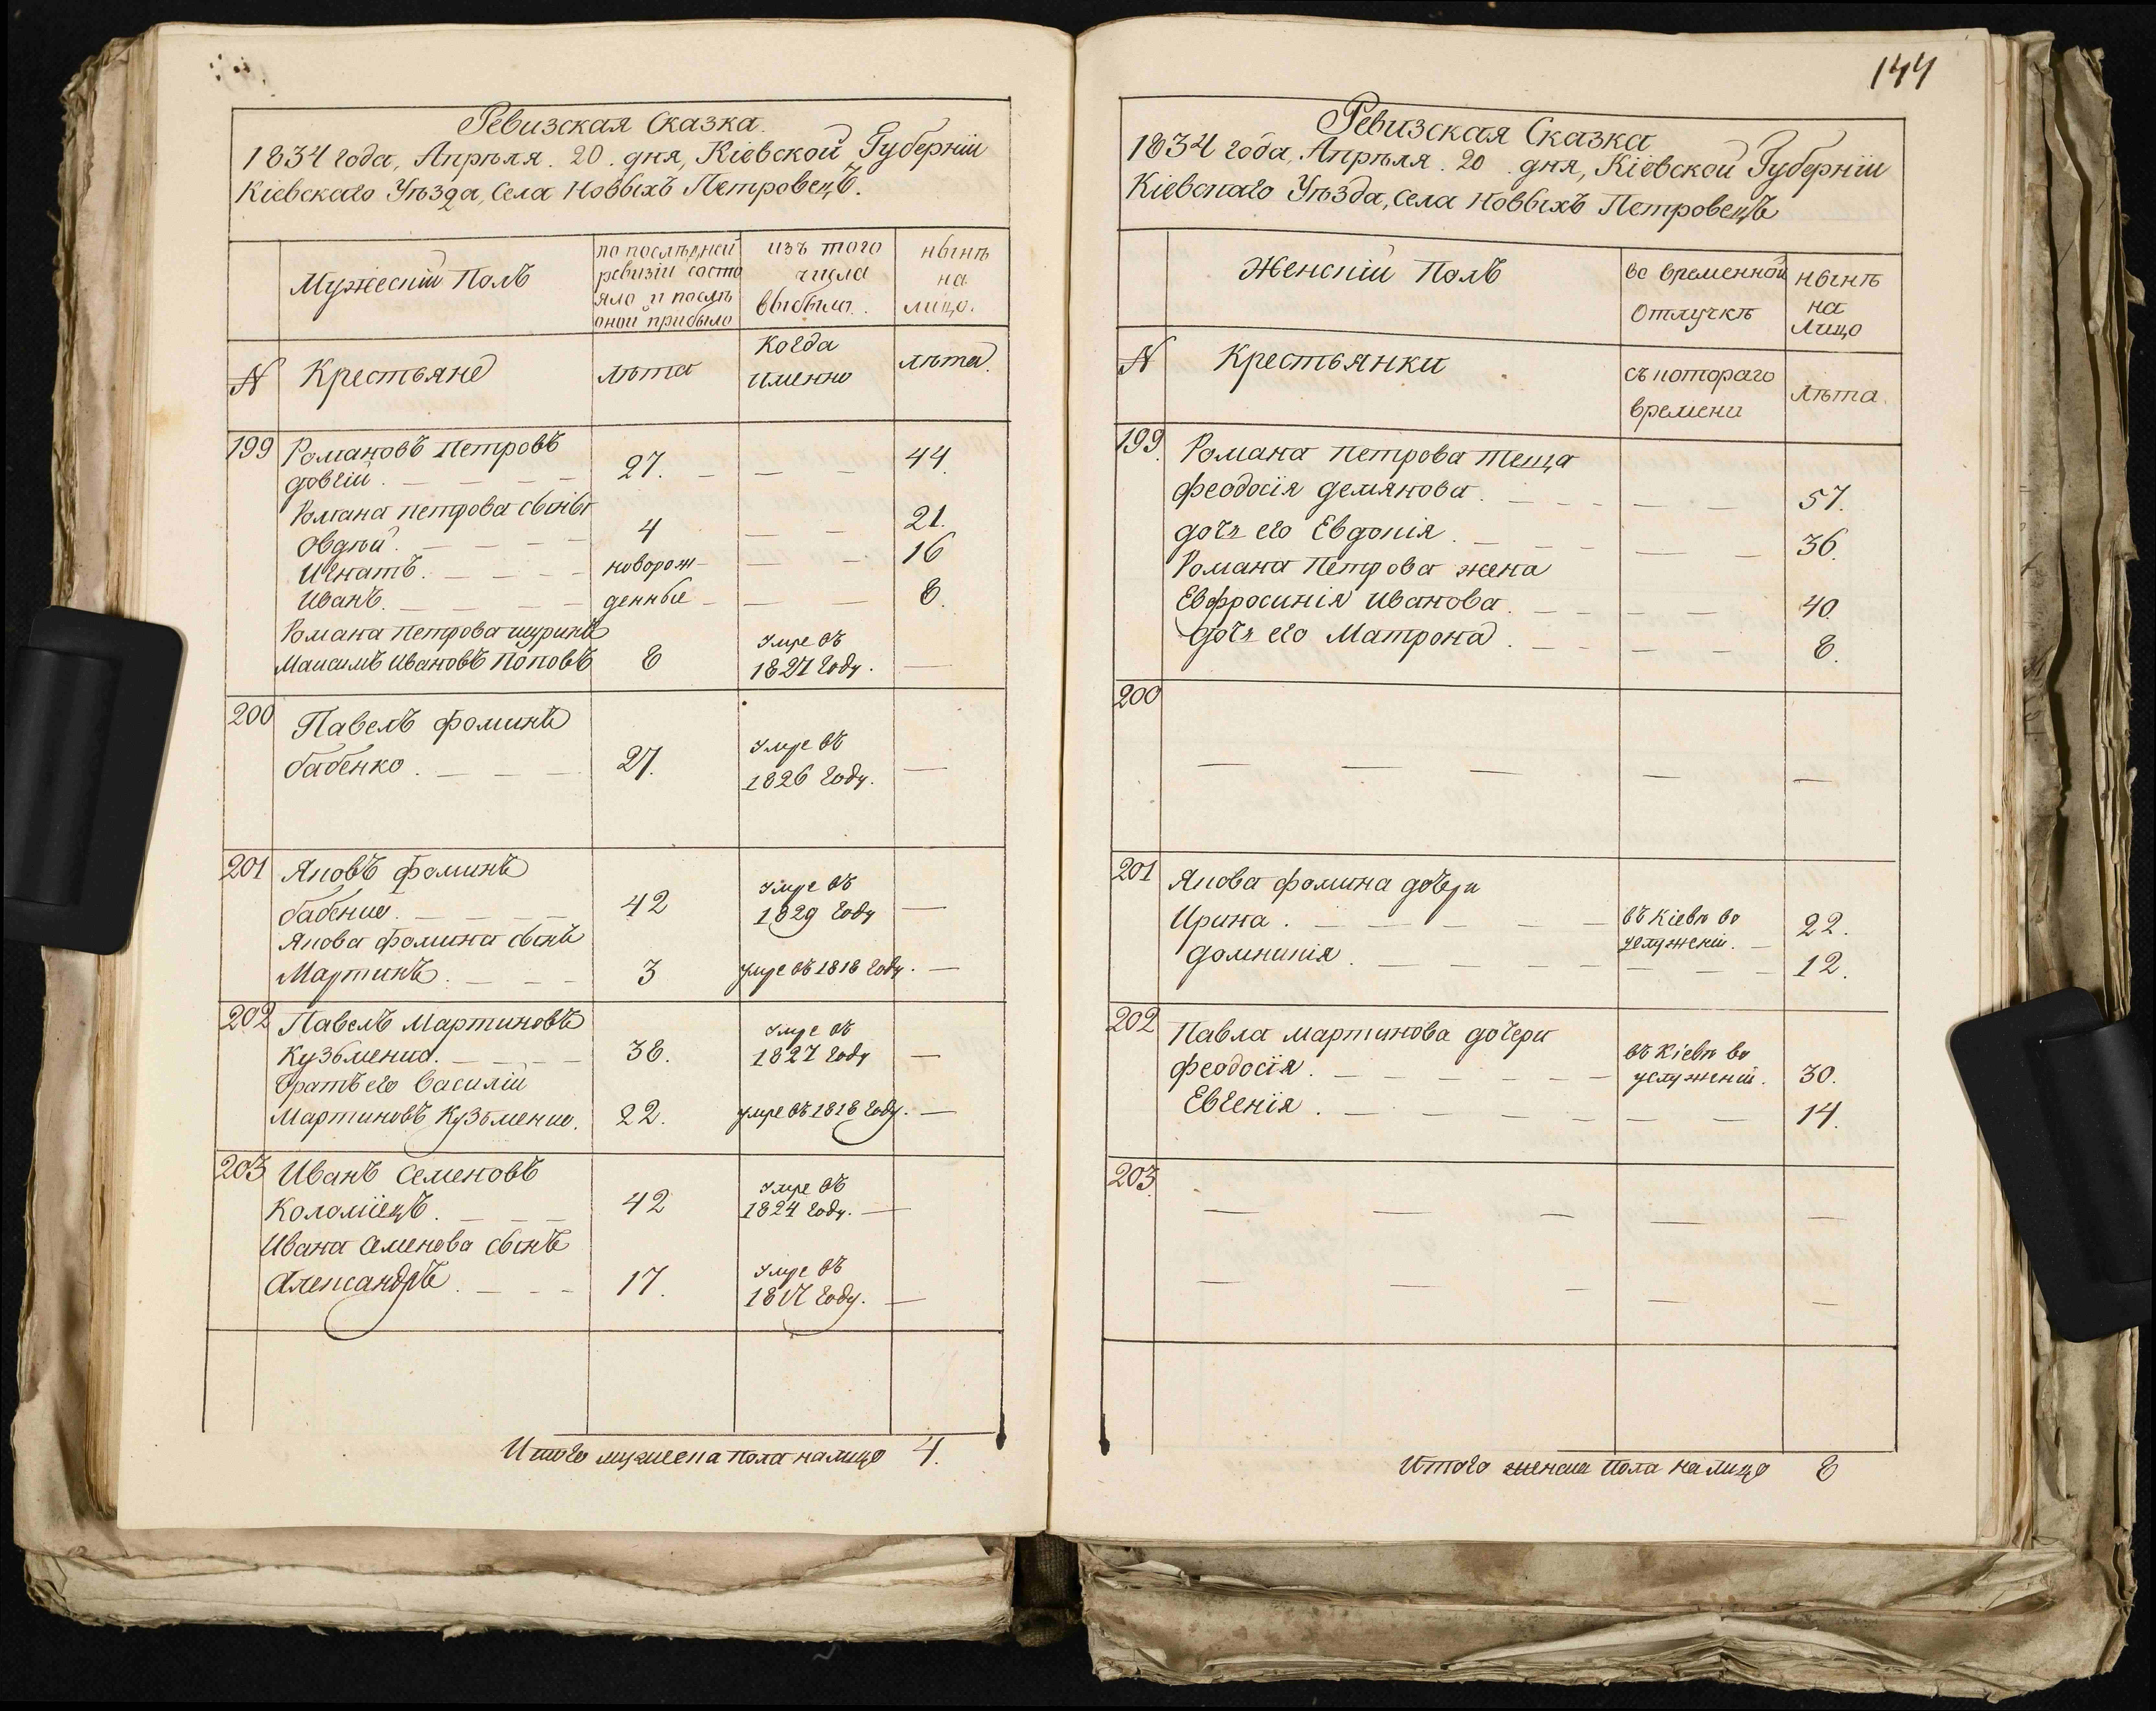 Ревизская Сказка.
1834 года, Апрѣля. 20. дня, Кіевской Губерніи
Кіевскаго Уѣзда, Села Новыхъ Петровецъ.
Мужескій Полъ
по послѣдней
ревизіи состо
яло и послѣ
оной прибыло
изъ того
числа
выбыли.
нынѣ
на
лицо.
N Крестьяне
лѣта
Когда
именно
лѣта.
199 Романовъ Петровъ
довгій. 27. 44.
Романа петрова сыны
Овдѣй. 4 21.
Игнатъ. новорож- 16
Иванъ. денные 8.
Романа Петрова шуринъ
Максимъ Ивановъ Поповъ 8 умре въ
1827 году.
200 Павелъ фоминъ
бабенко. 27. умре въ
1826 году.
201 Яковъ фоминъ
бабенко. 42 умре въ
1829 году
Якова фомина сынъ
Мартинъ. 3 умре въ 1818 году.
202 Павелъ Мартиновъ
Кузьменко. 38. умре въ
1827 году
братъ его Василій
Мартиновъ Кузьменко. 22. умре въ 1818 году.
203 Иванъ Семеновъ
Коломіецъ. 42 умре въ
1824 году.
Ивана Семенова сынъ
Александръ. 17. умре въ
1817 году.
Итого мужеска пола налицо 4.
144
Ревизская Сказка
1834 года, Апрѣля. 20. дня, Кіевской Губерніи
Кіевскаго Уѣзда, Села Новыхъ Петровецъ
Женскій Полъ
во временной
Отлучкѣ
нынѣ
на
Лицо
N Крестьянки
съ котораго
времени
Лѣта.
199. Романа петрова теща
феодосія демянова. 57.
дочь его Евдокія. 36.
Романа Петрова жена
Евфросинія Иванова. 40.
дочь его Матрона. 8.
200
201 Якова фомина дочери
Ирина. въ Кіевѣ во
услуженіи. 22.
Домникія. 12.
202 Павла Мартинова дочери
феодосія. въ Кіевѣ во
услуженіи. 30.
Евгенія. 14.
203.
Итого женска Пола налицо 8